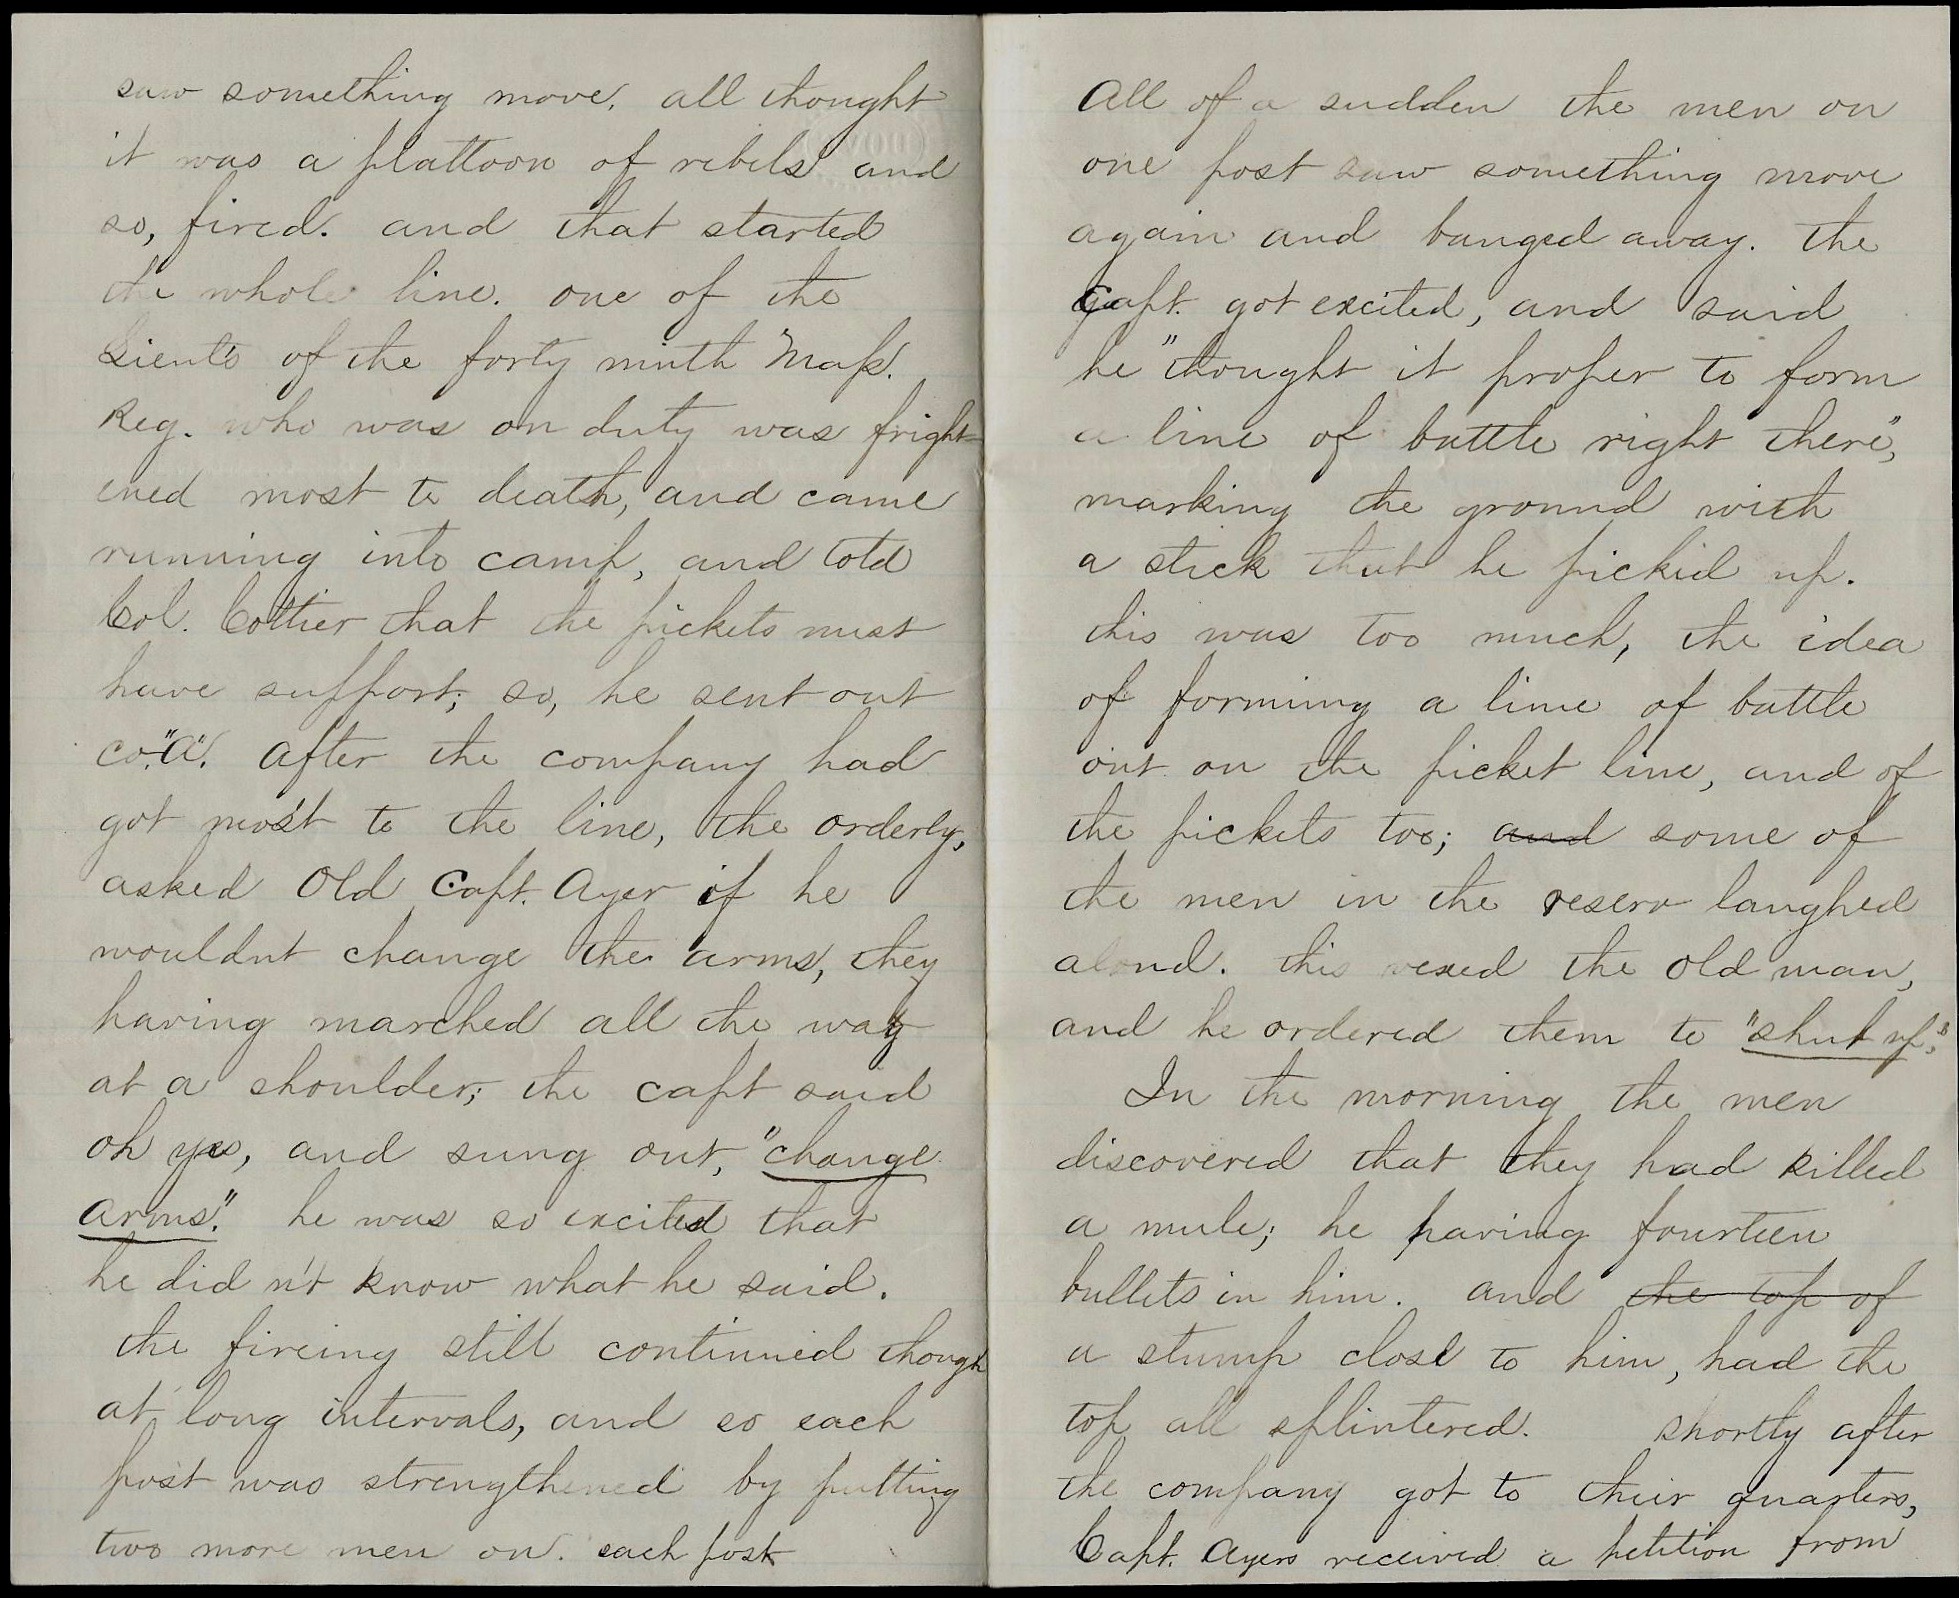 saw something move. all thought
it was a plattoon of rebels and
so, fired. and that started
the whole line. one of the
Lieut's of the forty ninth Mass.
Reg. who was on duty was fright-
ened most to death, and came
running into camp, and told
Col. Cottier that the pickets must
have support; so, he sent out
co. "A". after the company had
got most to the line, the orderly,
asked Old Capt. Ayer if he
wouldnt change the arms, they
having marched all the way
at a shoulder; the capt said
oh yes, and sung out, "change
arms". he was so excited that
he did n't know what he said.
the fireing still continued though
at long intervals, and so each
post was strengthened by putting
two more men on. each post
All of a sudden the men on
one post saw something move
again and banged away. the
Capt. got excited, and said
he "thought it proper to form
a line of battle right there",
marking the ground with
a stick that he picked up.
this was too much, the idea
of forming a line of battle
out on the picket line, and of
the pickets too; and some of
the men in the reserv laughed
aloud. this vexed the old man,
and he ordered them to "shut up."
In the morning the men
discovered that they had killed
a mule; he having fourteen
bullets in him. and the top of
a stump close to him, had the
top all splintered. shortly after
the company got to their quarters,
Capt. Ayers received a petition from